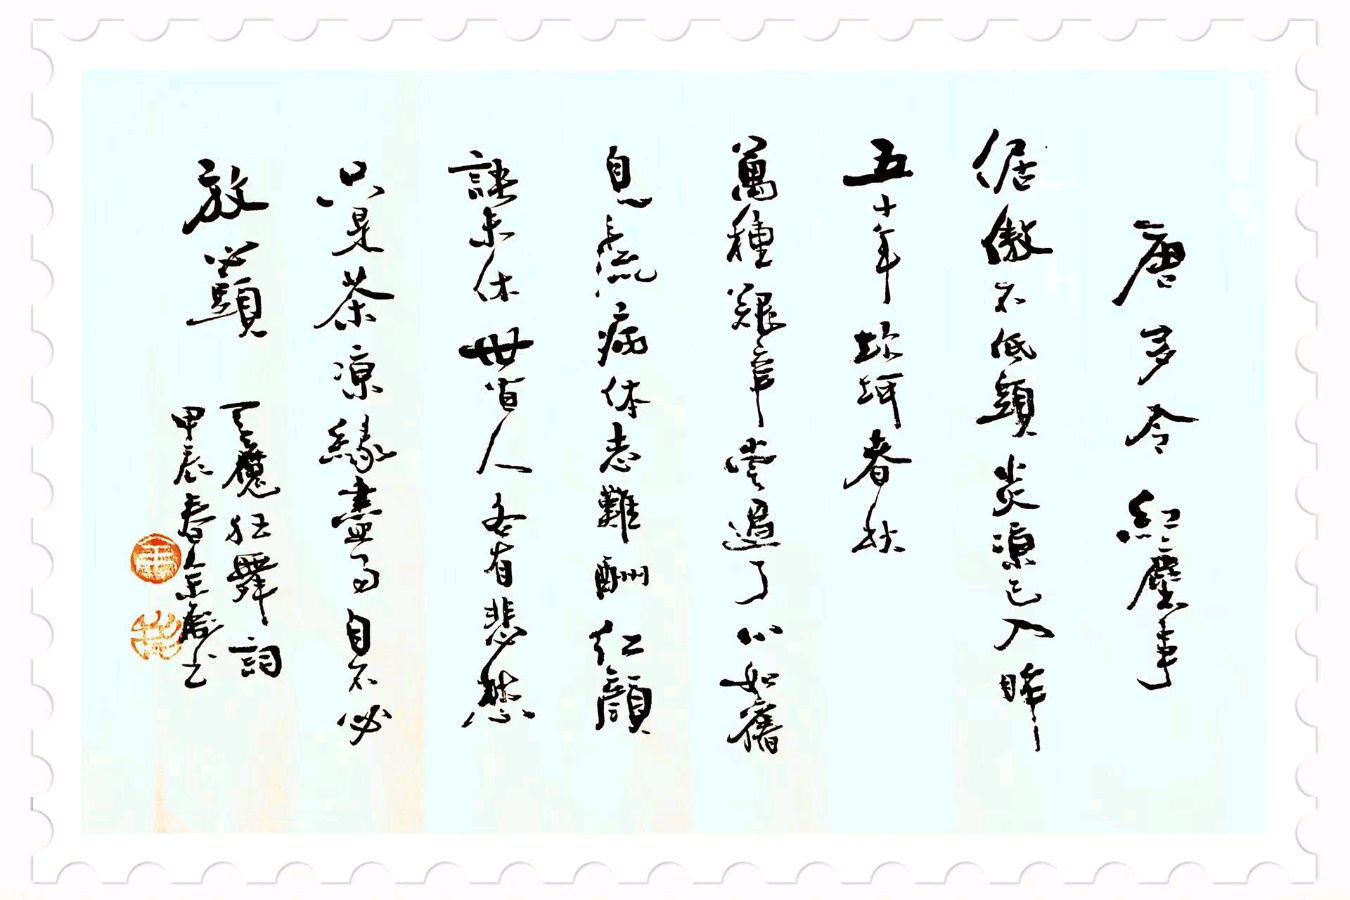 唐多令 紅塵事
倨傲不低頭 炎凉已入眸
五十年 坎坷春秋
萬種艱辛嘗過了 心如舊
息流 病体志難酬 红顔
未休 世人 各有悲愁
只是茶凉緣盡 自不必
放心頭
天魔狂舞 詞
甲辰春